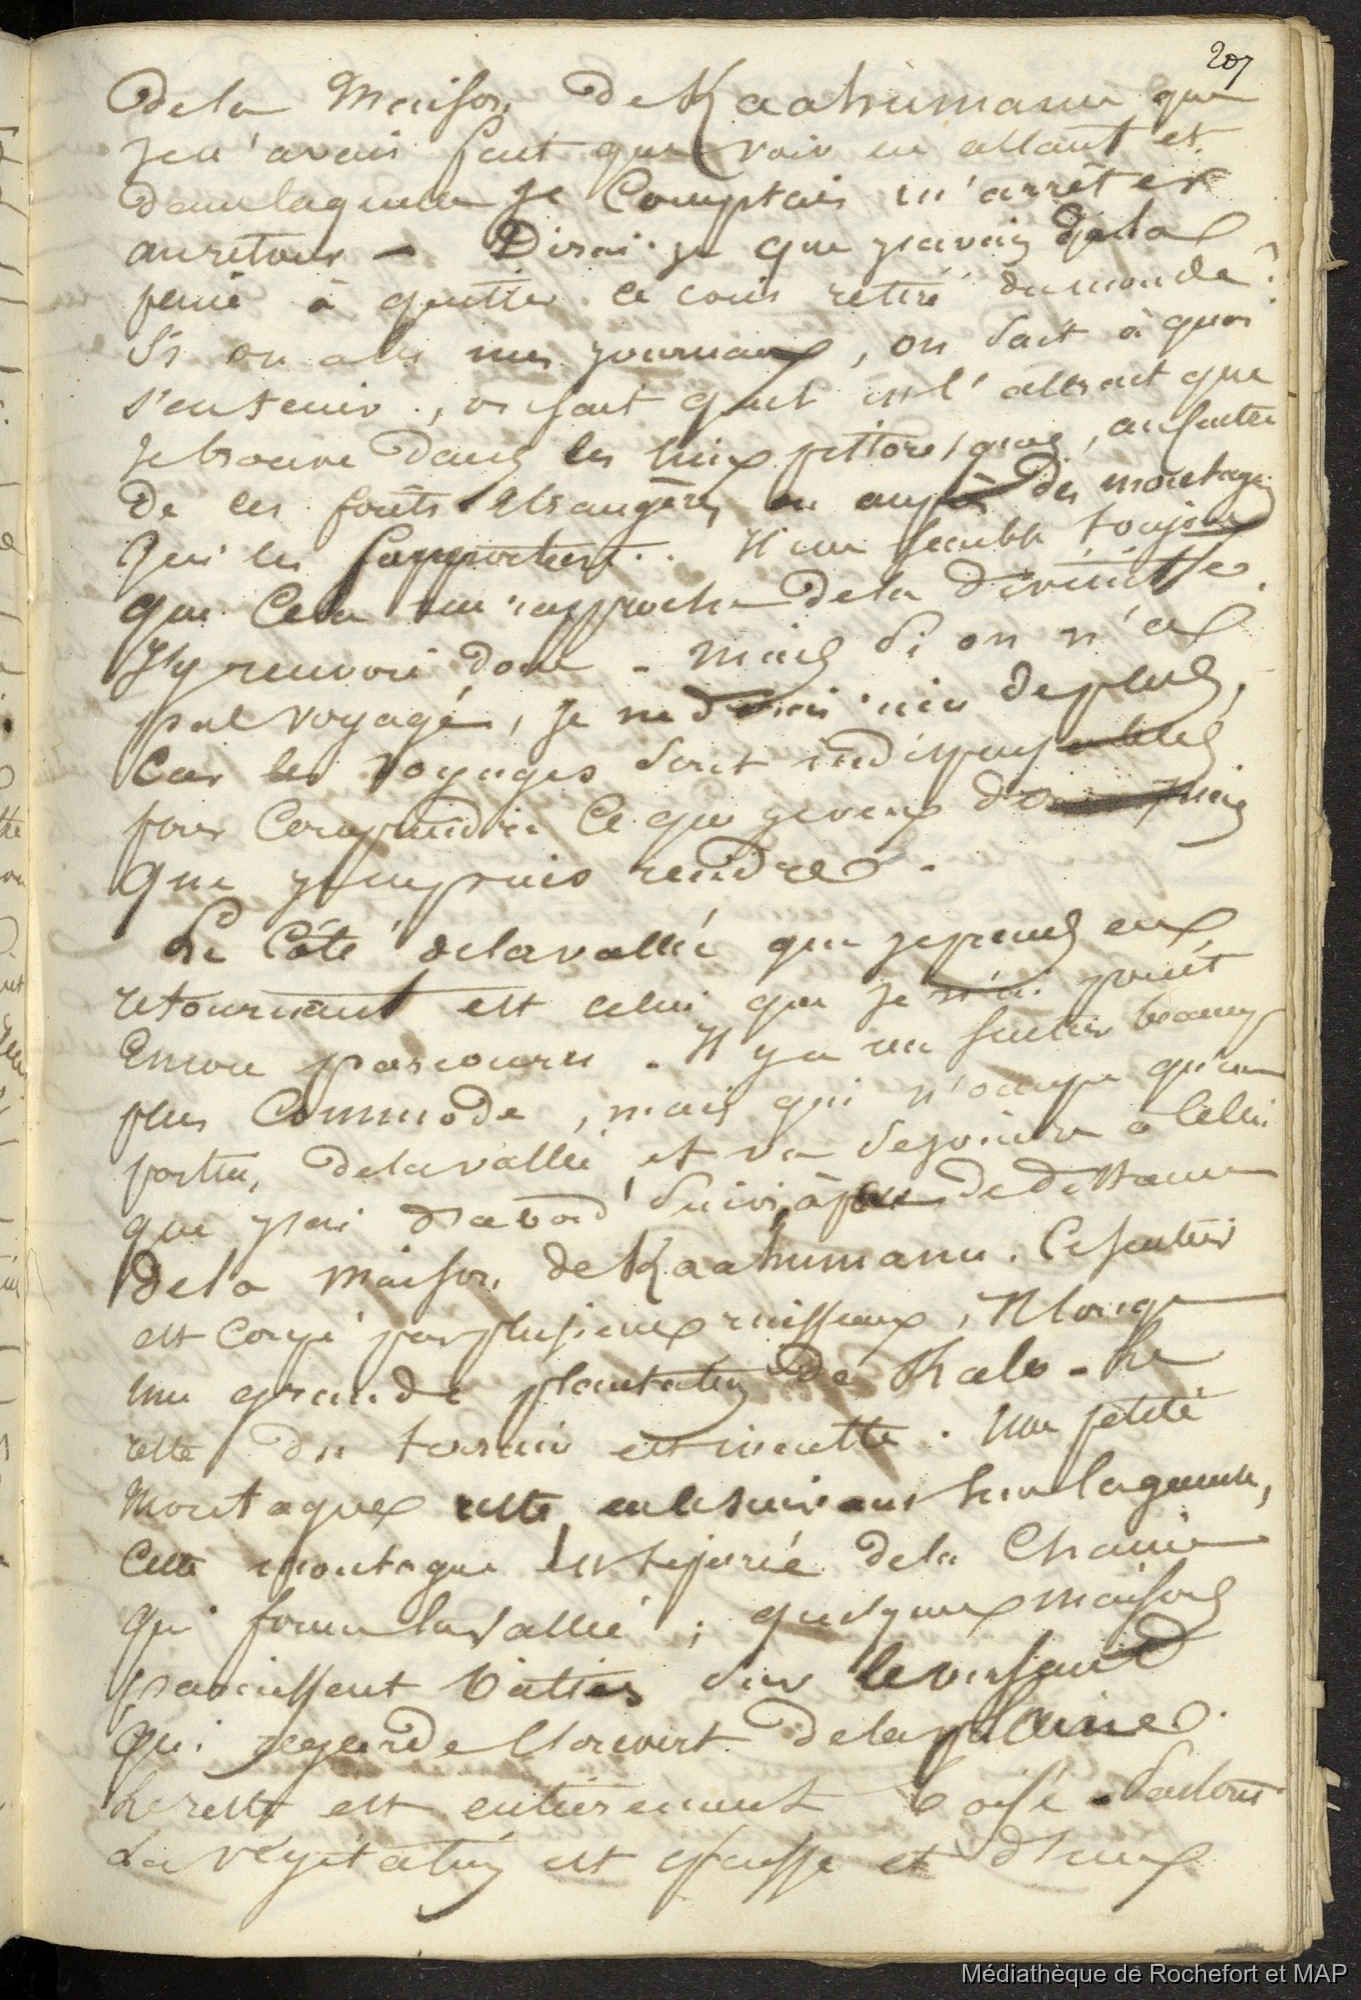 207
de la Maison de Kaahumanu que
je n'avais fait que voir en allant et
dans laquelle je Comptais m'arrêter
au retour – Dirai-je que j'avais de la
peine à quitter ce coin retiré du monde ?
Si on a lu mes journaux, on sait à quoi
s'en tenir., on sait quel est l'attrait que
je trouve dans les lieux pittoresques, au faite
de ces forêts étrangères, ou des montagnes
qui les supportent. Il me semble toujours
que Cela me rapproche de la divinité.
J'y renvoie donc – Mais si on n'a
pas voyagé, je ne dirai rien de plus,
Car les voyages sont indispensables
pour Comprendre Ce que je veux mais
que je ne puis rendre.
Le Côté de la vallée que je prends en
retournant est celui que je n'ai point
Encore parcouru. Il y a un sentier beaucoup
plus Commode, mais qui n'occupe qu'une
partie de la vallée, et va se joindre à Celui
que j'ai d'abord suivi, à peu de distance
de la Maison de Kaahumanu. Ce sentier
est coupé par plusieurs ruisseaux, Il longe
une grande plantation de Kalo – Le
reste du terrain est inculte. Une petite
Montagne reste en le suivant sur la gauche,
Cette montagne est séparée de la Chaine
qui forme la Vallée ; quelques maisons
paraissent bâties sur le versant
qui regarde l'ouvert de la plaine.
Le reste est entièrement boisé – Partout
La végétation est épaisse et d'un
Médiathèque de Rochefort et MAP